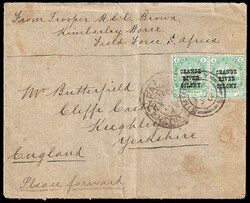 From Trooper H. & C. Brown
Kimberley Horse
Field Force S. Africa
ORANGE RIVER COLONY
ORANGE RIVER COLONY
Mr Butterfield
Cliffe Castle
Keighley
Yorkshire
England
Please forward